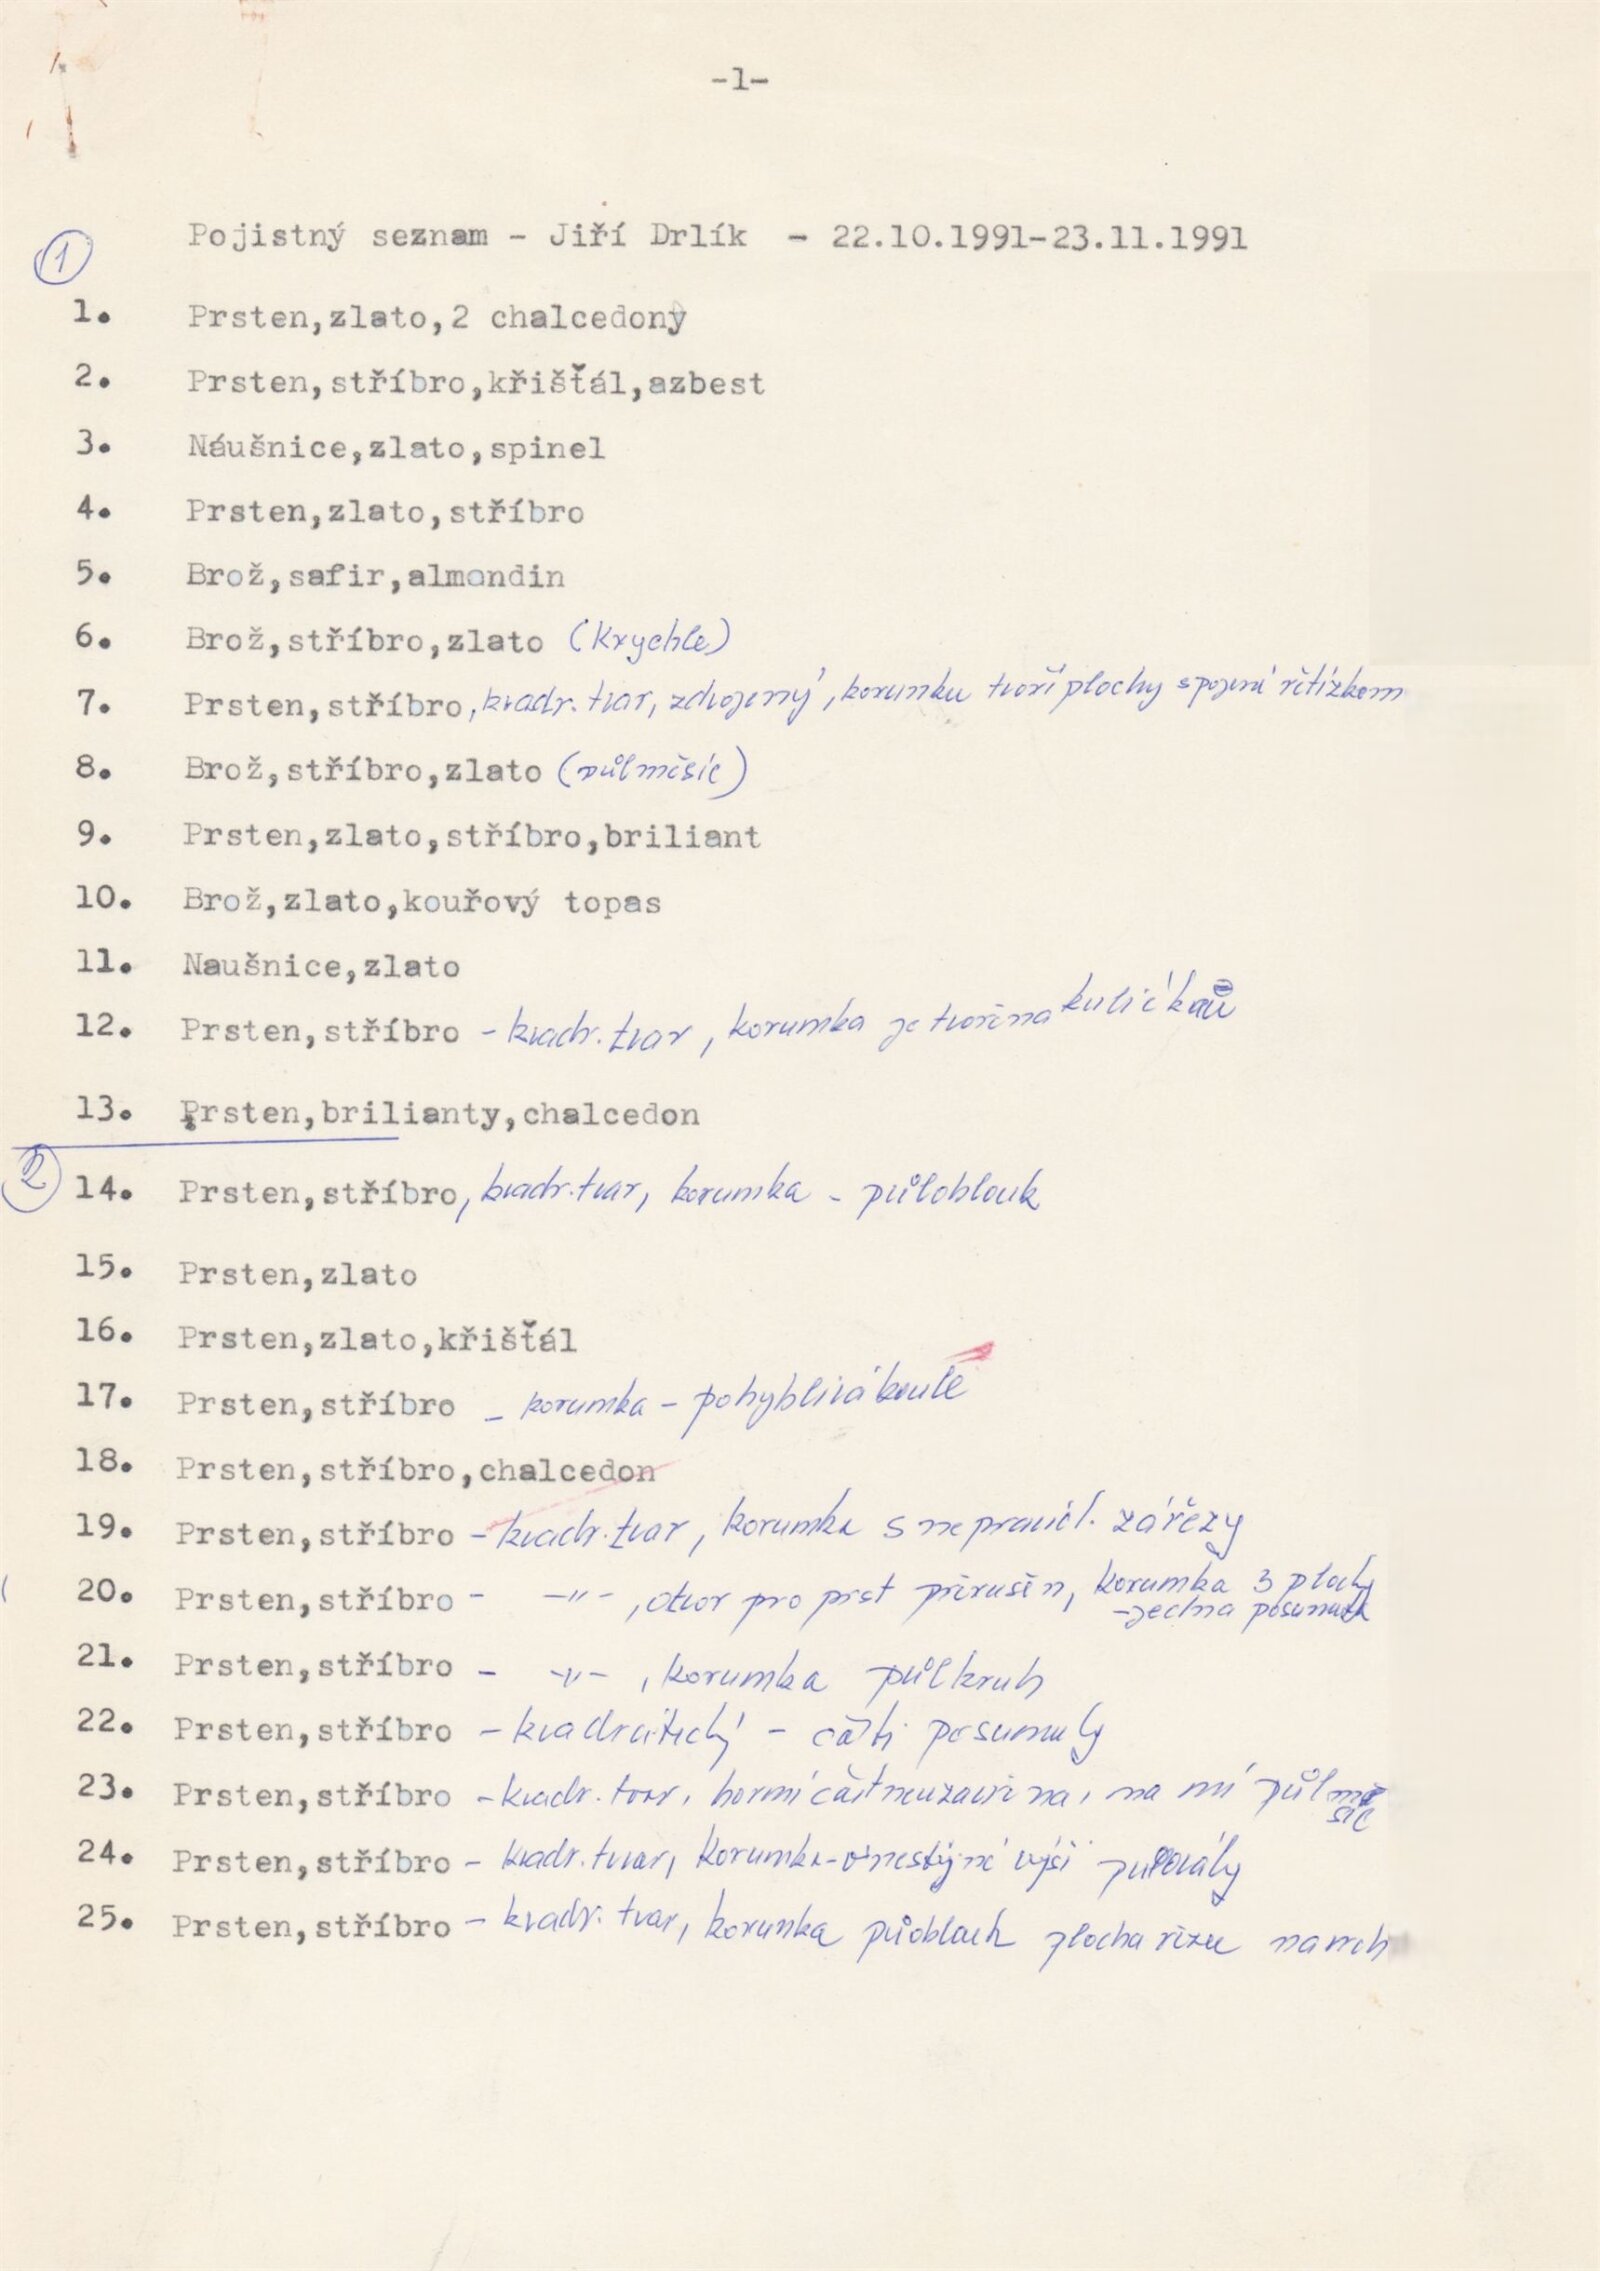 -1-
Pojistný seznam - Jiří Drlík - 22.10.1991-23.11.1991
1
1. Prsten,zlato,2 chalcedony
2. Prsten,stříbro,křišťál,azbest
3. Náušnice,zlato,spinel
4. Prsten,zlato,stříbro
5. Brož,safir,almandin
6. Brož,stříbro,zlato (Krychle)
7. Prsten,stříbro, kvadr. tvar, zdvojený, korunku tvoří plochy spojené řetízkem
8. Brož,stříbro,zlato (půlměsíc)
9. Prsten,zlato,stříbro,briliant
10. Brož,zlato,kouřový topas
11. Naušnice,zlato
12. Prsten,stříbro - kvadr. tvar, korunka je tvořena
13. Prsten,brilianty,chalcedon
2
14. Prsten,stříbro, kvadr. tvar, korunka - půloblouk
15. Prsten,zlato
16. Prsten,zlato,křišťál
17. Prsten,stříbro - korunka - pohyblivá koule
18. Prsten,stříbro,chalcedon
19. Prsten,stříbro - kvadr. tvar, korunka s nepravid. zářezy
20. Prsten,stříbro - -"- , otvor pro prst přerušen, korunka 3 plochy
- jedna posunuta
21. Prsten,stříbro - -"- , korunka půlkruh
22. Prsten,stříbro - kvadratický - části posunuly
23. Prsten,stříbro - kvadr. tvar, horní část neuzavřena, na ní půlmě
síc
24. Prsten,stříbro - kvadr. tvar, korunka - výši půlovály
25. Prsten,stříbro - kvadr. tvar, korunka půoblouk plocha řezu navrch